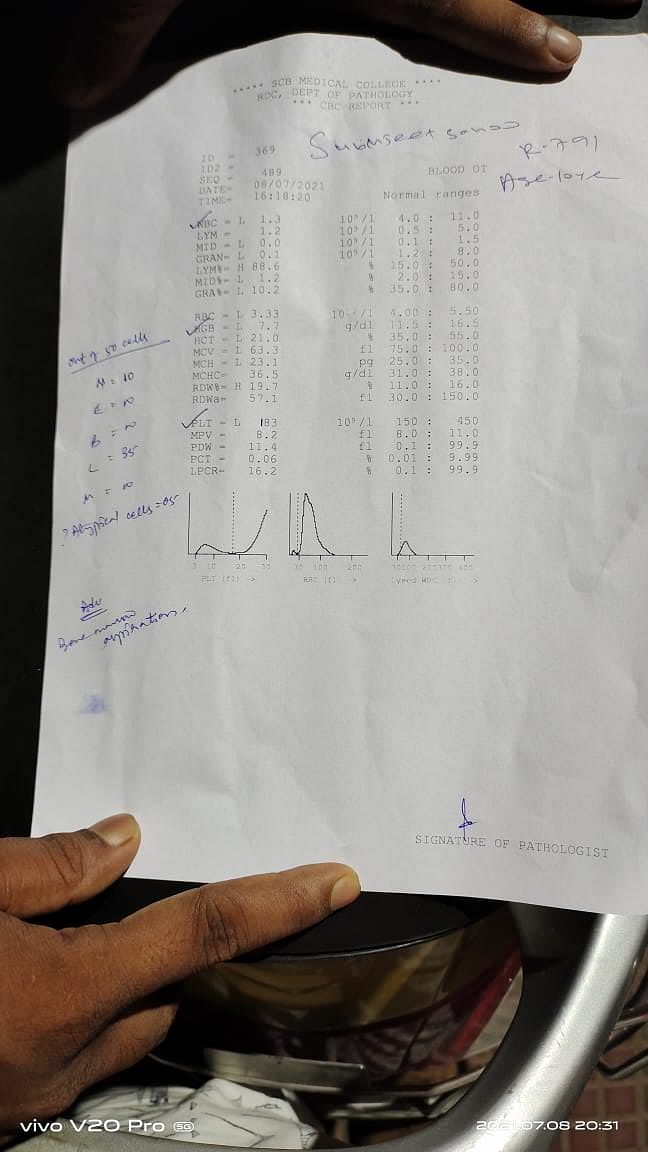 ***** SCB MEDICAL COLLEGE ****
RDC, DEPT OF PATHOLOGY
*** CBC REPORT ***
ID = 369
ID2 =
SEQ = 489
DATE= 08/07/2021
TIME= 16:18:20
R-791
BLOOD OT
Normal ranges
WBC = L 1.3 10⁹/l 4.0 : 11.0
LYM = 1.2 10⁹/l 0.5 : 5.0
MID = L 0.0 10⁹/l 0.1 : 1.5
GRAN= L 0.1 10⁹/l 1.2 : 8.0
LYM%= H 88.6 % 15.0 : 50.0
MID%= L 1.2 % 2.0 : 15.0
GRA%= L 10.2 % 35.0 : 80.0
RBC = L 3.33 /l 4.00 : 5.50
HGB = L 7.7 g/dl 11.5 : 16.5
HCT = L 21.0 % 35.0 : 55.0
MCV = L 63.3 fl 75.0 : 100.0
MCH = L 23.1 pg 25.0 : 35.0
MCHC= 36.5 g/dl 31.0 : 38.0
RDW%= H 19.7 % 11.0 : 16.0
RDWa= 57.1 fl 30.0 : 150.0
PLT = L 183 10⁹/l 150 : 450
MPV = 8.2 fl 8.0 : 11.0
PDW = 11.4 fl 0.1 : 99.9
PCT = 0.06 % 0.01 : 9.99
LPCR= 16.2 % 0.1 : 99.9
out of 50 cells
N = 10
E = 00
B = 00
L = 35
M = 00
? Atypical cells = 05
3 10 20 30
30 100 200
PLT (fl) ->
RBC (fl) ->
Adv
Bone marrow
aspiration.
SIGNATURE OF PATHOLOGIST
vivo V20 Pro 5G
2021.07.08 20:31